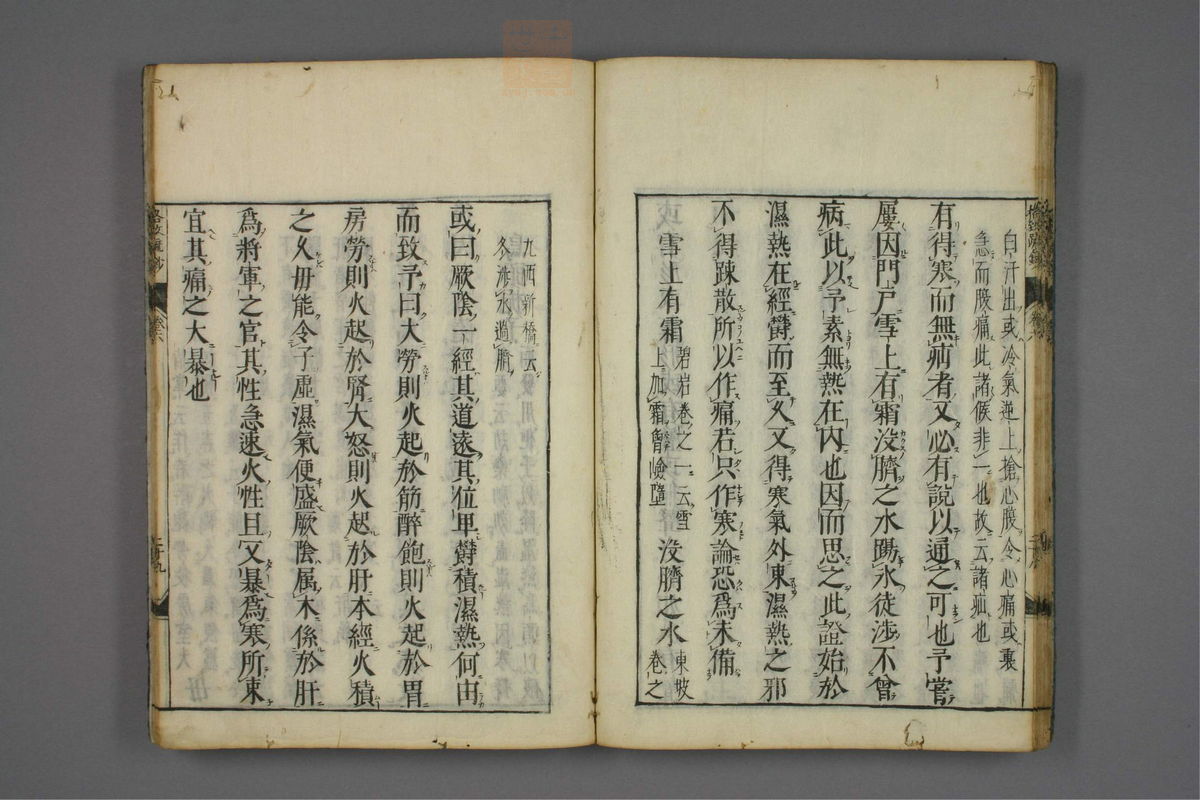 白汗出或冷氣逆上搶心腹令心痛或裏
急而腹痛此諸候非一也故云諸疝也
有得寒而無疝者又必有說以通之可也予嘗
屢因門戶雪上有霜沒臍之水踢氷徒涉不曾
病此以予素無熱在內也因而思之此證始於
濕熱在經欝而至久又得寒氣外束濕熱之邪
不得踈散所以作痛若只作寒論恐爲未備
雪上有霜
碧岩卷之一云雪
上加霜曾嶮墮
沒臍之水
東坡
卷之
九西新橋云
冬涉水過臍
或曰厥陰一經其道遠其位卑欝積濕熱何由
而致予曰大勞則火起於筋醉飽則火起於胃
房勞則火起於腎大怒則火起於肝本經火積
之久毋能令子虛濕氣便盛厥陰属木係於肝
爲將軍之官其性急速火性且又暴爲寒所束
宜其痛之大暴也
卷六
二十九